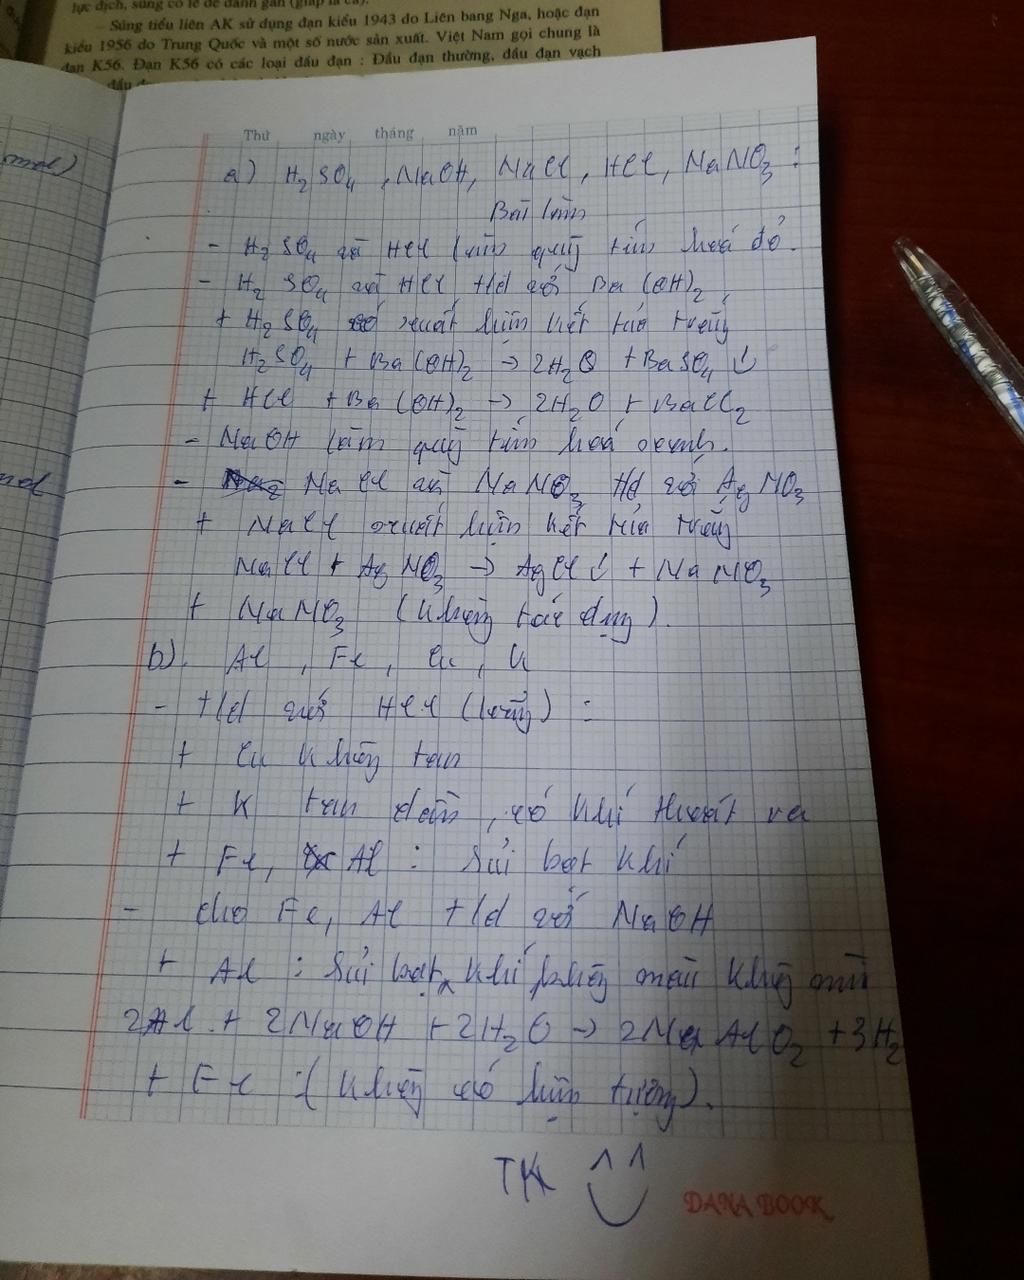 lực địch, súng có lê để đánh gần (giáp lá cà).
- Súng tiểu liên AK sử dụng đạn kiểu 1943 do Liên bang Nga, hoặc đạn
kiểu 1956 do Trung Quốc và một số nước sản xuất. Việt Nam gọi chung là
đạn K56. Đạn K56 có các loại đầu đạn : Đầu đạn thường, đầu đạn vạch
Thứ ngày tháng năm
a) H₂SO₄, NaOH, NaCl, HCl, NaNO₃ :
Bài làm
- H₂SO₄ và HCl làm quỳ tím hoá đỏ.
- H₂SO₄ và HCl t/d với Ba(OH)₂
+ H₂SO₄ xuất hiện kết tủa trắng
H₂SO₄ + Ba(OH)₂ → 2H₂O + BaSO₄ ↓
+ HCl + Ba(OH)₂ → 2H₂O + BaCl₂
- NaOH làm quỳ tím hoá xanh.
- NaCl và NaNO₃ t/d với AgNO₃
+ NaCl xuất hiện kết tủa trắng
NaCl + AgNO₃ → AgCl ↓ + NaNO₃
+ NaNO₃ (không tác dụng).
b). Al, Fe, Cu, K
- t/d với HCl (loãng) :
+ Cu không tan
+ K tan dần, có khí thoát ra
+ Fe, Al : Sủi bọt khí
- cho Fe, Al t/d với NaOH
+ Al : Sủi bọt khí không màu không mùi
2Al + 2NaOH + 2H₂O → 2NaAlO₂ + 3H₂
+ Fe : (không có hiện tượng).
TK
DANA BOOK